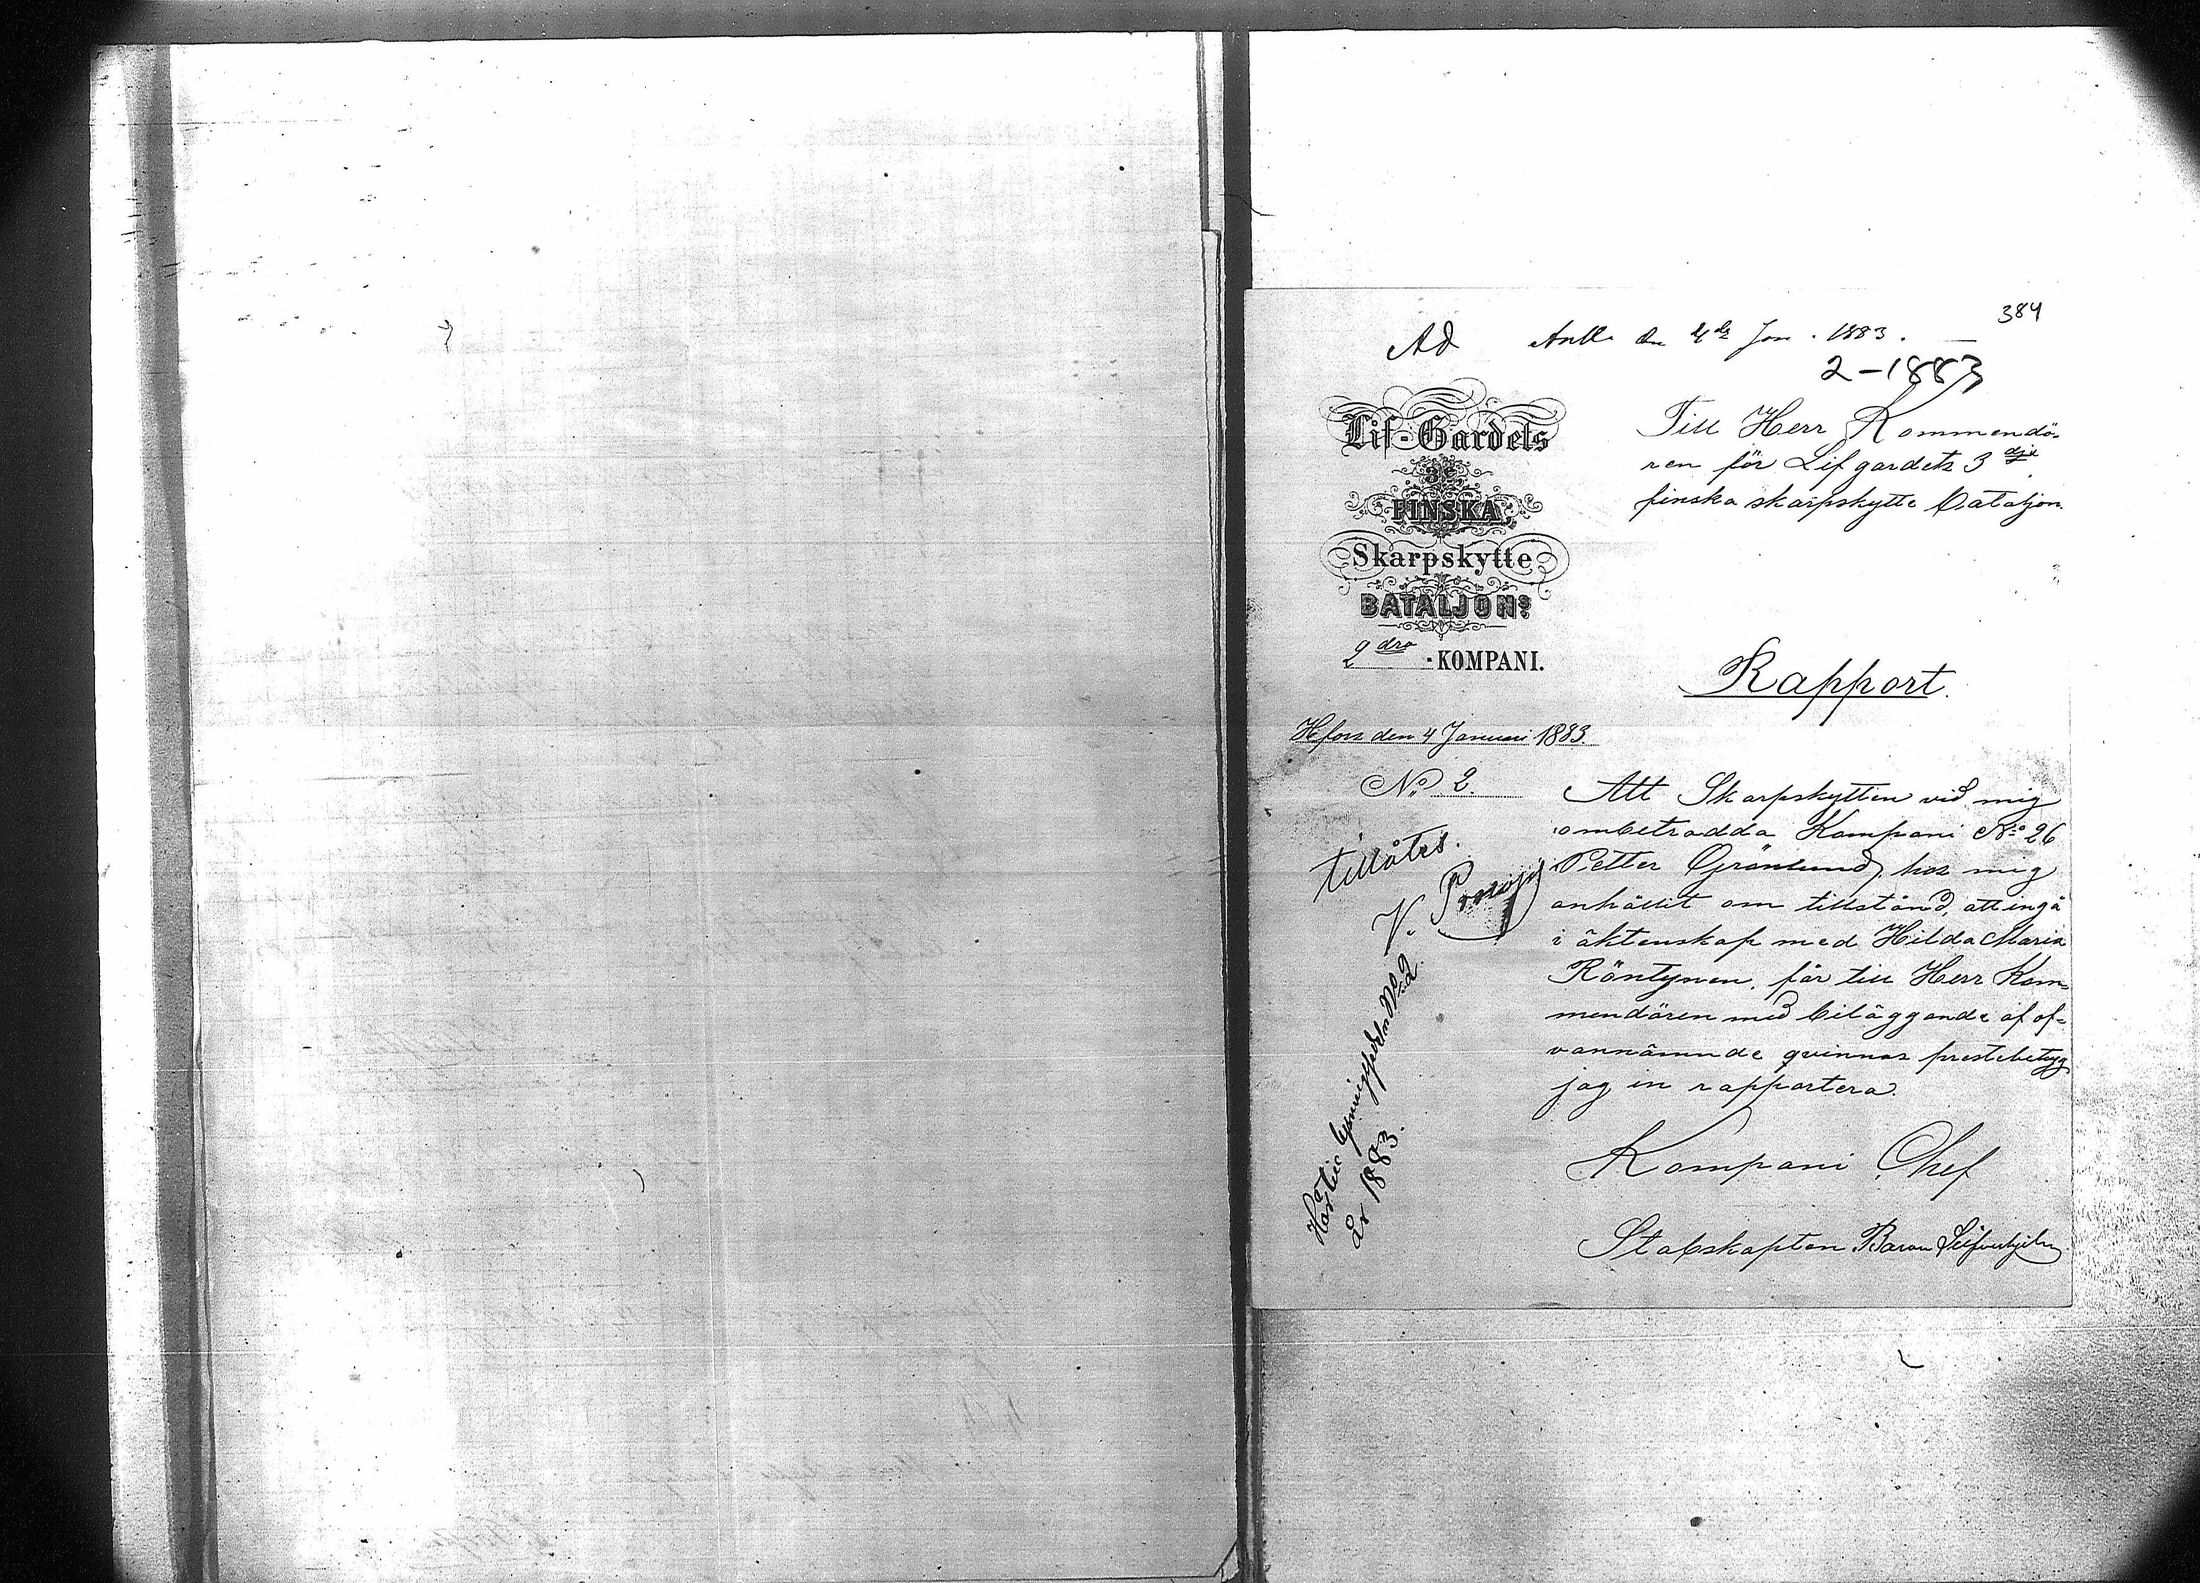 384
Ad Ank. den 4de Jan. 1883.
2-1883
Lif-Gardets
3e
FINSKA
Skarpskytte
BATALJONS
2dra -KOMPANI.
Till Herr Kommendö-
ren för Lifgardets 3dje
finska skarpskytte bataljon.
Rapport.
Hfors den 4 Januari 1883.
No 2.
tillåtes.
V.
Har tic No 2
år 1883.
Att Skarpskytten vid mig
ombetrodda Kompani No 26
Petter Grönlund, hos mig
anhållit om tillstånd, att ingå
i äktenskap med Hilda Maria
Röntynen, får till Herr Kom-
mendören med biläggande af of-
vannämnde qvinnas prestebetyg
jag in rapportera.
Kompani Chef
Stabskapten Baron Silfverhjelm